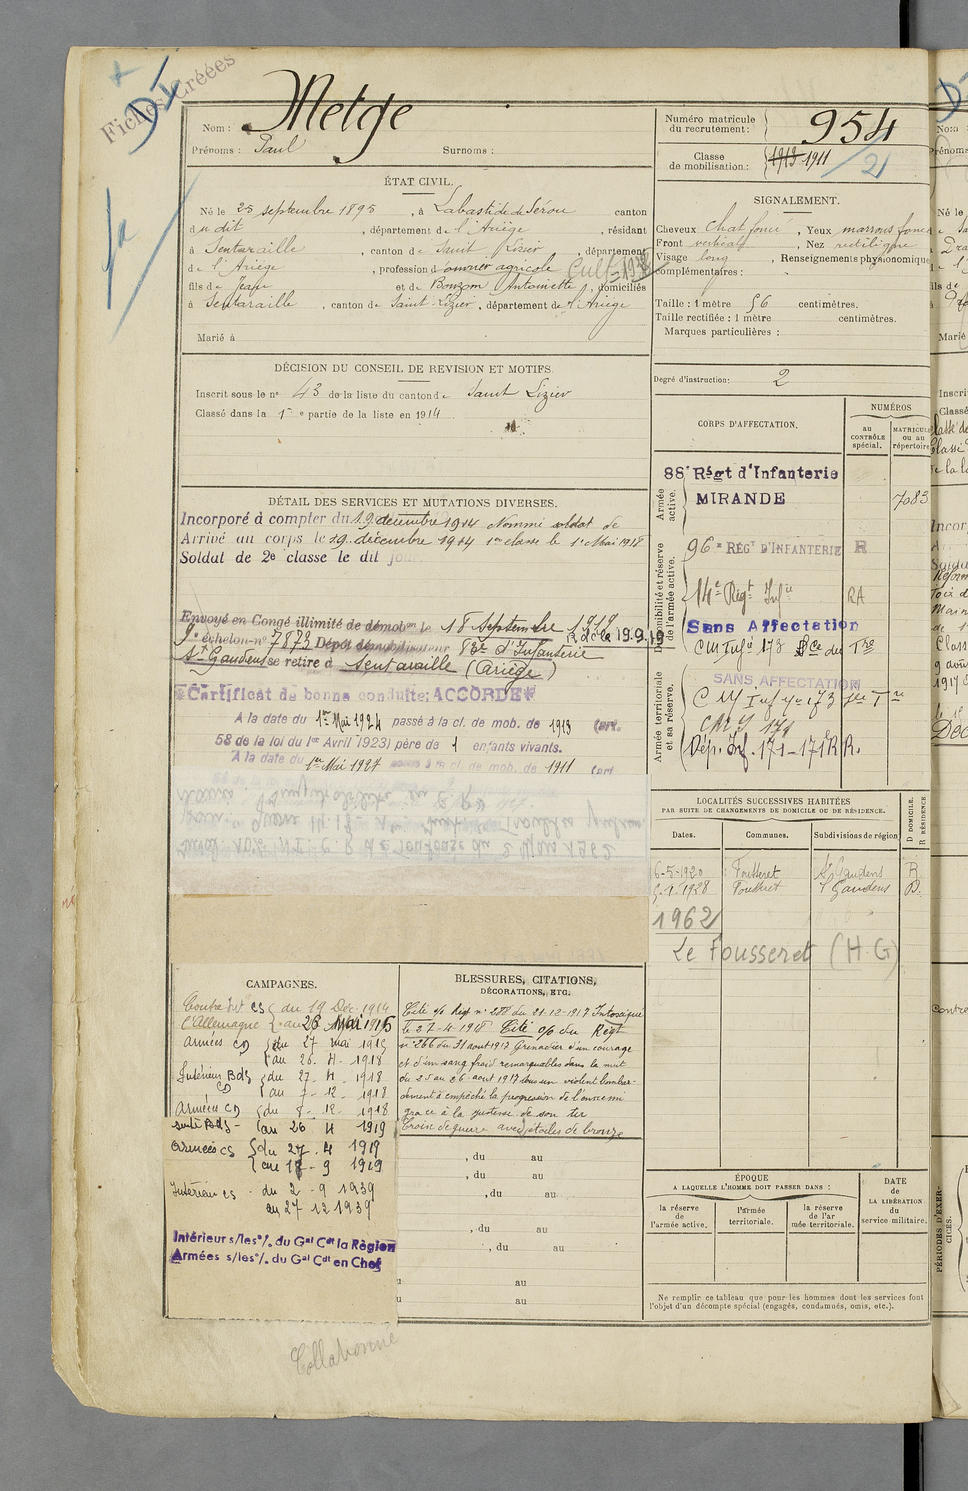 Fiches Créées
DI
Metge
Nom :
Prénoms : Paul Surnoms :
Numéro matricule
du recrutement :
954
Classe
de mobilisation :
1913 1911
21
ÉTAT CIVIL.
Né le 25 septembre 1895, à Labastide de Sérou canton
du dit, département de l'Ariège, résidant
à Sentaraille, canton de Saint Lizier, département
de l'Ariège, profession d'ouvrier agricole Cult
fils de Jean et de Bonzom Antoinette, domiciliés
à Sentaraille, canton de Saint Lizier, département de l'Ariège
Marié à
SIGNALEMENT.
Cheveux chat foncé, Yeux marrons foncé
Front vertical, Nez rectiligne
Visage long, Renseignements physionomiques
complémentaires :
Taille : 1 mètre 56 centimètres.
Taille rectifiée : 1 mètre centimètres.
Marques particulières :
Degré d'instruction : 2
DÉCISION DU CONSEIL DE REVISION ET MOTIFS.
Inscrit sous le n° 43 de la liste du canton de Saint Lizier
Classé dans la 1re partie de la liste en 1914
DÉTAIL DES SERVICES ET MUTATIONS DIVERSES.
Incorporé à compter du 19 décembre 1914 Nommé soldat de
Arrivé au corps le 19 décembre 1914 1re classe le 1er Mai 1918
Soldat de 2e classe le dit jour
Envoyé en Congé illimité de démobon le 18 Septembre
9e échelon n° 7873 Dépôt démobilisateur 83e d'Infanterie
R de le 19.9.19
St Gaudens se retire à Sentaraille (Ariège)
Certificat de bonne conduite: ACCORDÉ
A la date du 1er Mai 1924 passé à la cl. de mob. de 1913 (art.
58 de la loi du 1er Avril 1923) père de 1 enfants vivants.
A la date du 1er Mai 1927 passé à la cl. de mob. de 1911 (art
CORPS D'AFFECTATION.
NUMÉROS
au
CONTRÔLE
spécial.
MATRICULE
ou au
répertoire
Armée
active.
88e Régt d'Infanterie
MIRANDE
7083
Disponibilité et réserve
de l'armée active.
96e RÉGT D'INFANTERIE R
14e Régt Infie RA
Sans Affectation
CM Infie 173
Armée territoriale
et sa réserve.
SANS AFFECTATION
Dép. Inf. 171 - 171 RR.
LOCALITÉS SUCCESSIVES HABITÉES
PAR SUITE DE CHANGEMENTS DE DOMICILE OU DE RÉSIDENCE.
Dates. Communes. Subdivisions de région
D DOMICILE.
R RÉSIDENCE
6-5-1920 Fousseret St Gaudens R
1928 Fousseret St Gaudens D.
1962
Le Fousseret (H.G)
CAMPAGNES.
Contre CS du 19 Déc. 1914
l'Allemagne au 26 Mai 1915
Armées CD du 27 Mai 1915
au 26. 4. 1918
Intérieur Bds du 27. 4. 1918
CD au 7-12-1918
Armées CD du 8-12-1918
suite Bds au 26 4 1919
Armées CS du 27. 4 1919
au 18-9 1919
Intérieur CS du 2-9 1939
au 27 12 1939
Intérieur s/les o/. du Gal Cdt la Région
Armées s/les o/. du Gal Cdt en Chef
BLESSURES, CITATIONS,
DÉCORATIONS, ETC.
Cité o/ Régt n° du 21-12-1917 Intoxiqué
le 27-4-1918 Cité o/o du Régt
n° 266 du 31 aout 1917 Grenadier d'un courage
et d'un sang froid remarquables dans la nuit
du 25 au 26 aout 1917 sous un violent bombar-
dement a empêché la progression de l'ennemi
grace à la justesse de son tir
Croix de guerre avec étoiles de bronze
, du au
, du au
, du au
, du au
, du au
au
au
ÉPOQUE
A LAQUELLE L'HOMME DOIT PASSER DANS :
la réserve
de
l'armée active.
l'armée
territoriale.
la réserve
de l'ar
mée territoriale.
DATE
de
LA LIBÉRATION
du
service militaire.
Ne remplir ce tableau que pour les hommes dont les services font
l'objet d'un décompte spécial (engagés, condamnés, omis, etc.).
PÉRIODES D'EXER-
CICES.